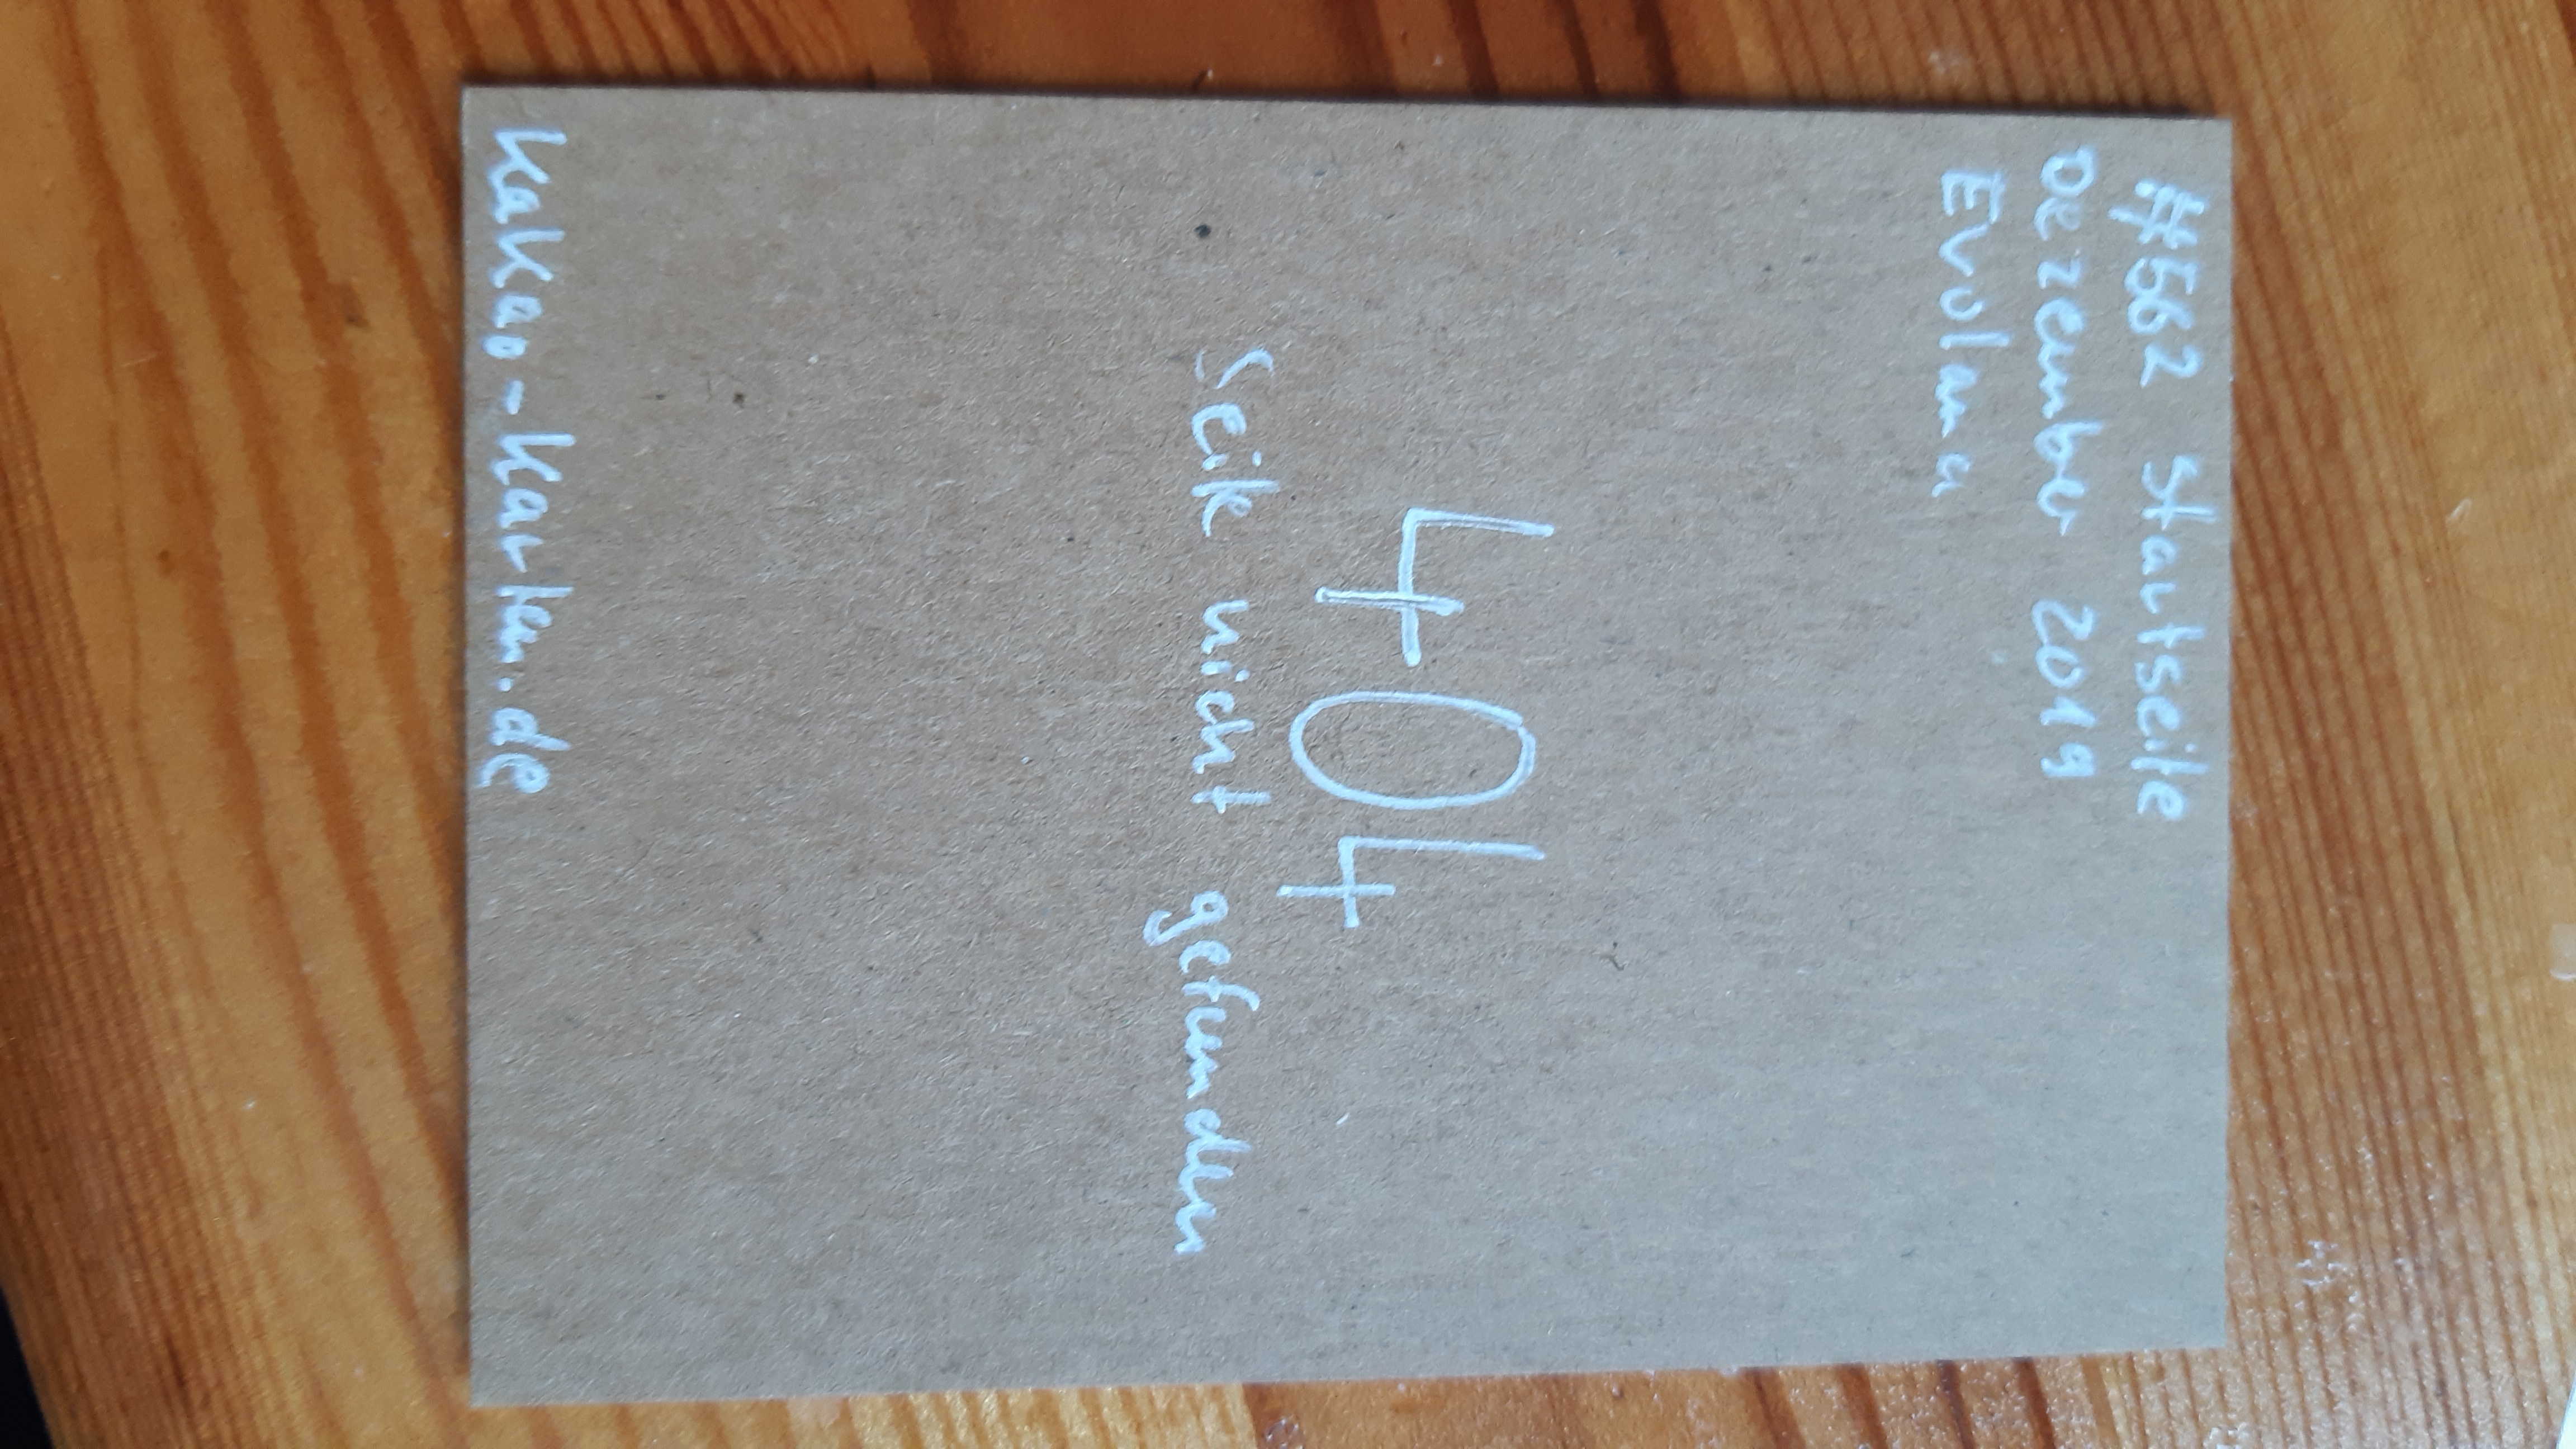 #562 Startseite
Dezember 2019
Evolana
404
Seite nicht gefunden
Kakao-Karten.de